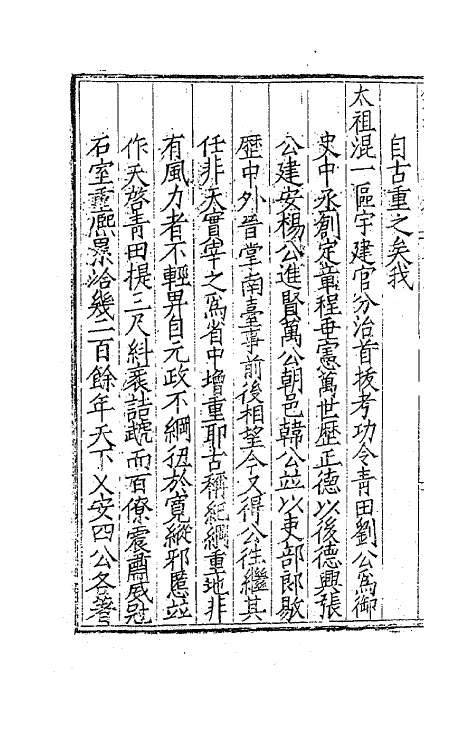 自古重之矣我
太祖混一區宇建官分治首拔考功令青田劉公爲御
史中丞創定章程垂憲萬世歴正德以後德興張
公建安楊公進賢萬公朝邑韓公竝以吏部郎敭
歴中外晉掌南臺事前後相望今又得公徃繼其
任非天實宰之爲省中增重耶古稱紀綱重地非
有風力者不輕畀自元政不綱弛於寛縱邪慝竝
作天啓青田提三尺糾袤詰䚹而百僚震讋威冠
石室重熈累洽幾二百餘年天下乂安四公各著